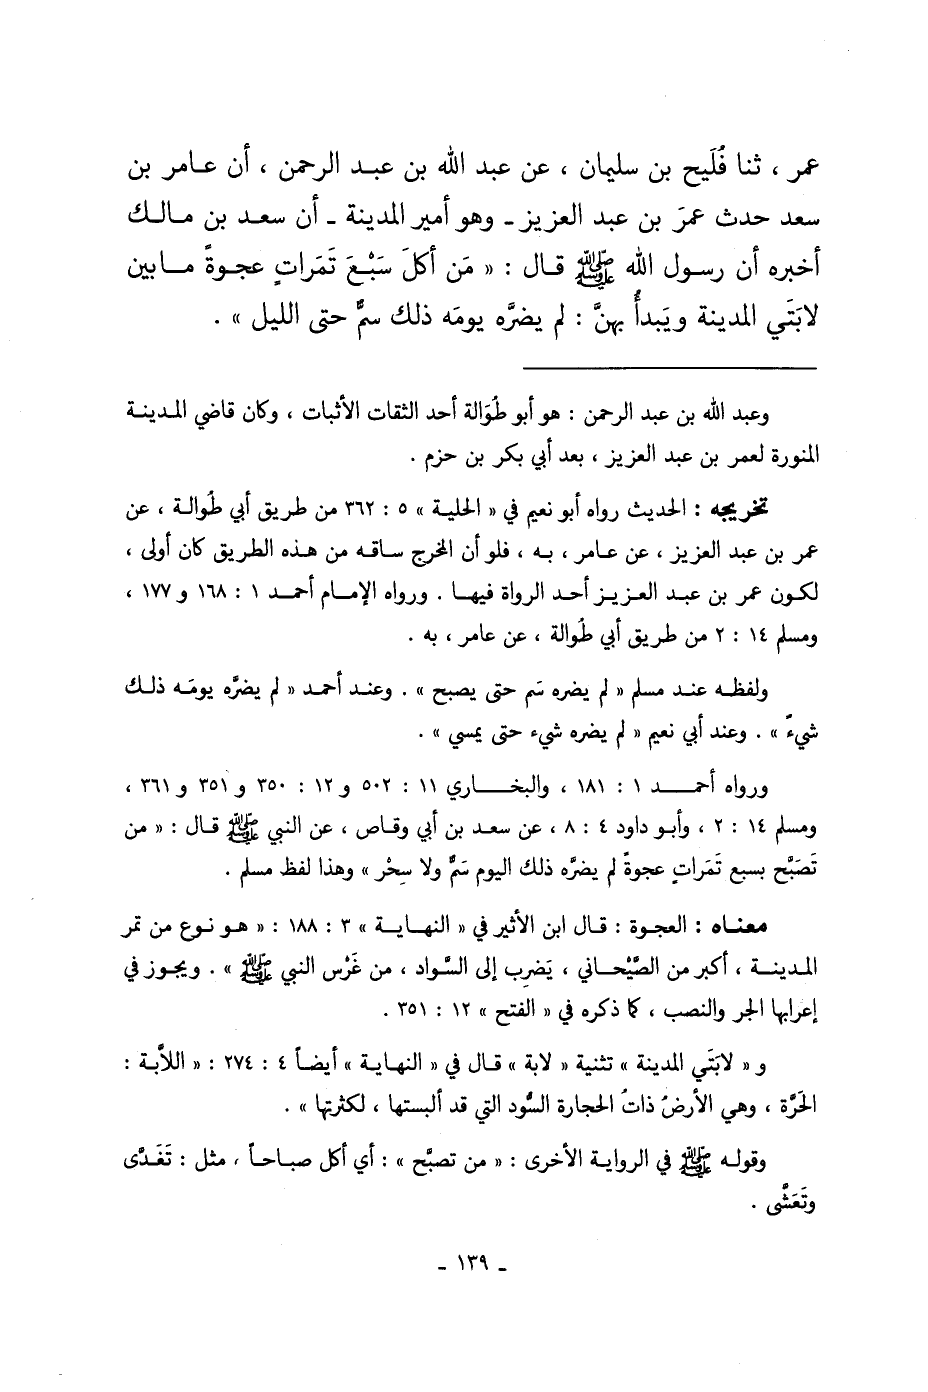 عمر ، ثنا فُلَيح بن سليمان ، عن عبد الله بن عبد الرحمن ، أن عامر بن
سعد حدث عمرَ بن عبد العزيز ـ وهو أمير المدينة ـ أن سعد بن مالك
أخبره أن رسول الله ﷺ قال : « مَن أكلَ سَبْعَ تَمَراتٍ عجوةً مابين
لابَتَي المدينة ويَبدأُ بهنَّ : لم يضرَّه يومَه ذلك سمٌّ حتى الليل » .
وعبد الله بن عبد الرحمن : هو أبو طُوَالة أحد الثقات الأثبات ، وكان قاضي المدينة
المنورة لعمر بن عبد العزيز ، بعد أبي بكر بن حزم .
تخريجه : الحديث رواه أبو نعيم في « الحلية » ٥ : ٣٦٢ من طريق أبي طُوالة ، عن
عمر بن عبد العزيز ، عن عامر ، به ، فلو أن المخرج ساقه من هذه الطريق كان أولى ،
لكون عمر بن عبد العزيز أحد الرواة فيها . ورواه الإمام أحمد ١ : ١٦٨ و ١٧٧ ،
ومسلم ١٤ : ٢ من طريق أبي طُوالة ، عن عامر ، به .
ولفظه عند مسلم « لم يضره سَم حتى يصبح » . وعند أحمد « لم يضرَّه يومَه ذلك
شيءٌ » . وعند أبي نعيم « لم يضره شيء حتى يمسي » .
ورواه أحمد ١ : ١٨١ ، والبخاري ١١ : ٥٠٢ و ١٢ : ٣٥٠ و ٣٥١ و ٣٦١ ،
ومسلم ١٤ : ٢ ، وأبو داود ٤ : ٨ ، عن سعد بن أبي وقاص ، عن النبي ﷺ قال : « من
تَصَبَّح بسبع تَمَراتٍ عجوةً لم يضرَّه ذلك اليوم سَمٌّ ولا سِحْر » وهذا لفظ مسلم .
معناه : العجوة : قال ابن الأثير في « النهاية » ٣ : ١٨٨ : « هو نوع من تمر
المدينة ، أكبر من الصَّيْحاني ، يَضرِب إلى السَّواد ، من غَرْس النبي ﷺ » . ويجوز في
إعرابها الجر والنصب ، كما ذكره في « الفتح » ١٢ : ٣٥١ .
و « لابَتَي المدينة » تثنية « لابة » قال في « النهاية » أيضاً ٤ : ٢٧٤ : « اللاَّبة :
الحَرَّة ، وهي الأرضُ ذاتُ الحجارة السُّود التي قد ألبستها ، لكثرتها » .
وقوله ﷺ في الرواية الأخرى : « من تصبَّح » : أي أكل صباحاً ، مثل : تَغَدَّى
وتَعَشَّى .
ـ ١٣٩ ـ